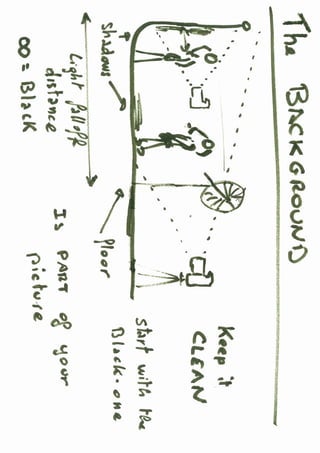 The BACKGROUND
Keep it
CLEAN
Start with the
Black-one
Floor
Shadows
Light falloff
distance
∞ = Black
Is PART of your
picture